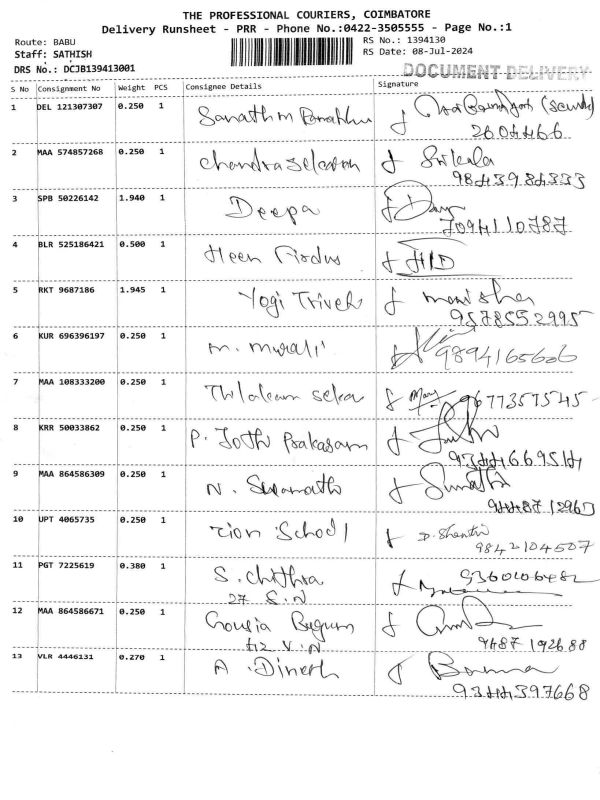 THE PROFESSIONAL COURIERS, COIMBATORE
Delivery Runsheet - PRR - Phone No.:0422-3505555 - Page No.:1
Route: BABU RS No.: 1394130
Staff: SATHISH RS Date: 08-Jul-2024
DRS No.: DCJB139413001 DOCUMENT DELIVERY
S No Consignment No Weight PCS Consignee Details Signature
1 DEL 121307307 0.250 1 Sanath m
2604466
2 MAA 574857268 0.250 1 Chandraselaran Srikala
9843984333
3 SPB 50226142 1.940 1 Deepa
7094110787
4 BLR 525186421 0.500 1 Heen Firdus
5 RKT 9687186 1.945 1 Yogi Trivek monisha
9578552995
6 KUR 696396197 0.250 1 m. murali
9894165606
7 MAA 108333200 0.250 1 Thilakam Seka 9677357545
8 KRR 50033862 0.250 1 P. Jothi Prakasam
9344669514
9 MAA 864586309 0.250 1 N. Sumathi
944871296
10 UPT 4065735 0.250 1 Zion School D. Shanthi
9842104507
11 PGT 7225619 0.380 1 S. Chithra
27 S.N
12 MAA 864586671 0.250 1 Gousia Begum
112 V.N 9487192688
13 VLR 4446131 0.270 1 A. Dinesh
9344397668